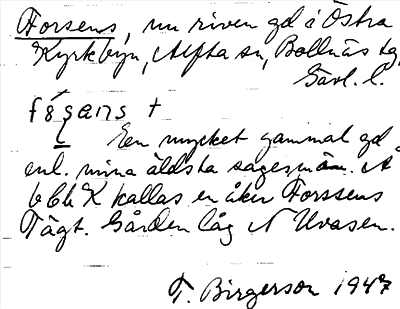 Forsens, nu riven gd i Östra
Kyrkbyn, Alfta sn, Bollnäs tg,
Gävl. l.
En mycket gammal gd
enl. mina äldsta sagesmän. A
bbh K kallas en åker Forssens
Tägt. Gården låg N Uvasen.
T. Birgerson 1947